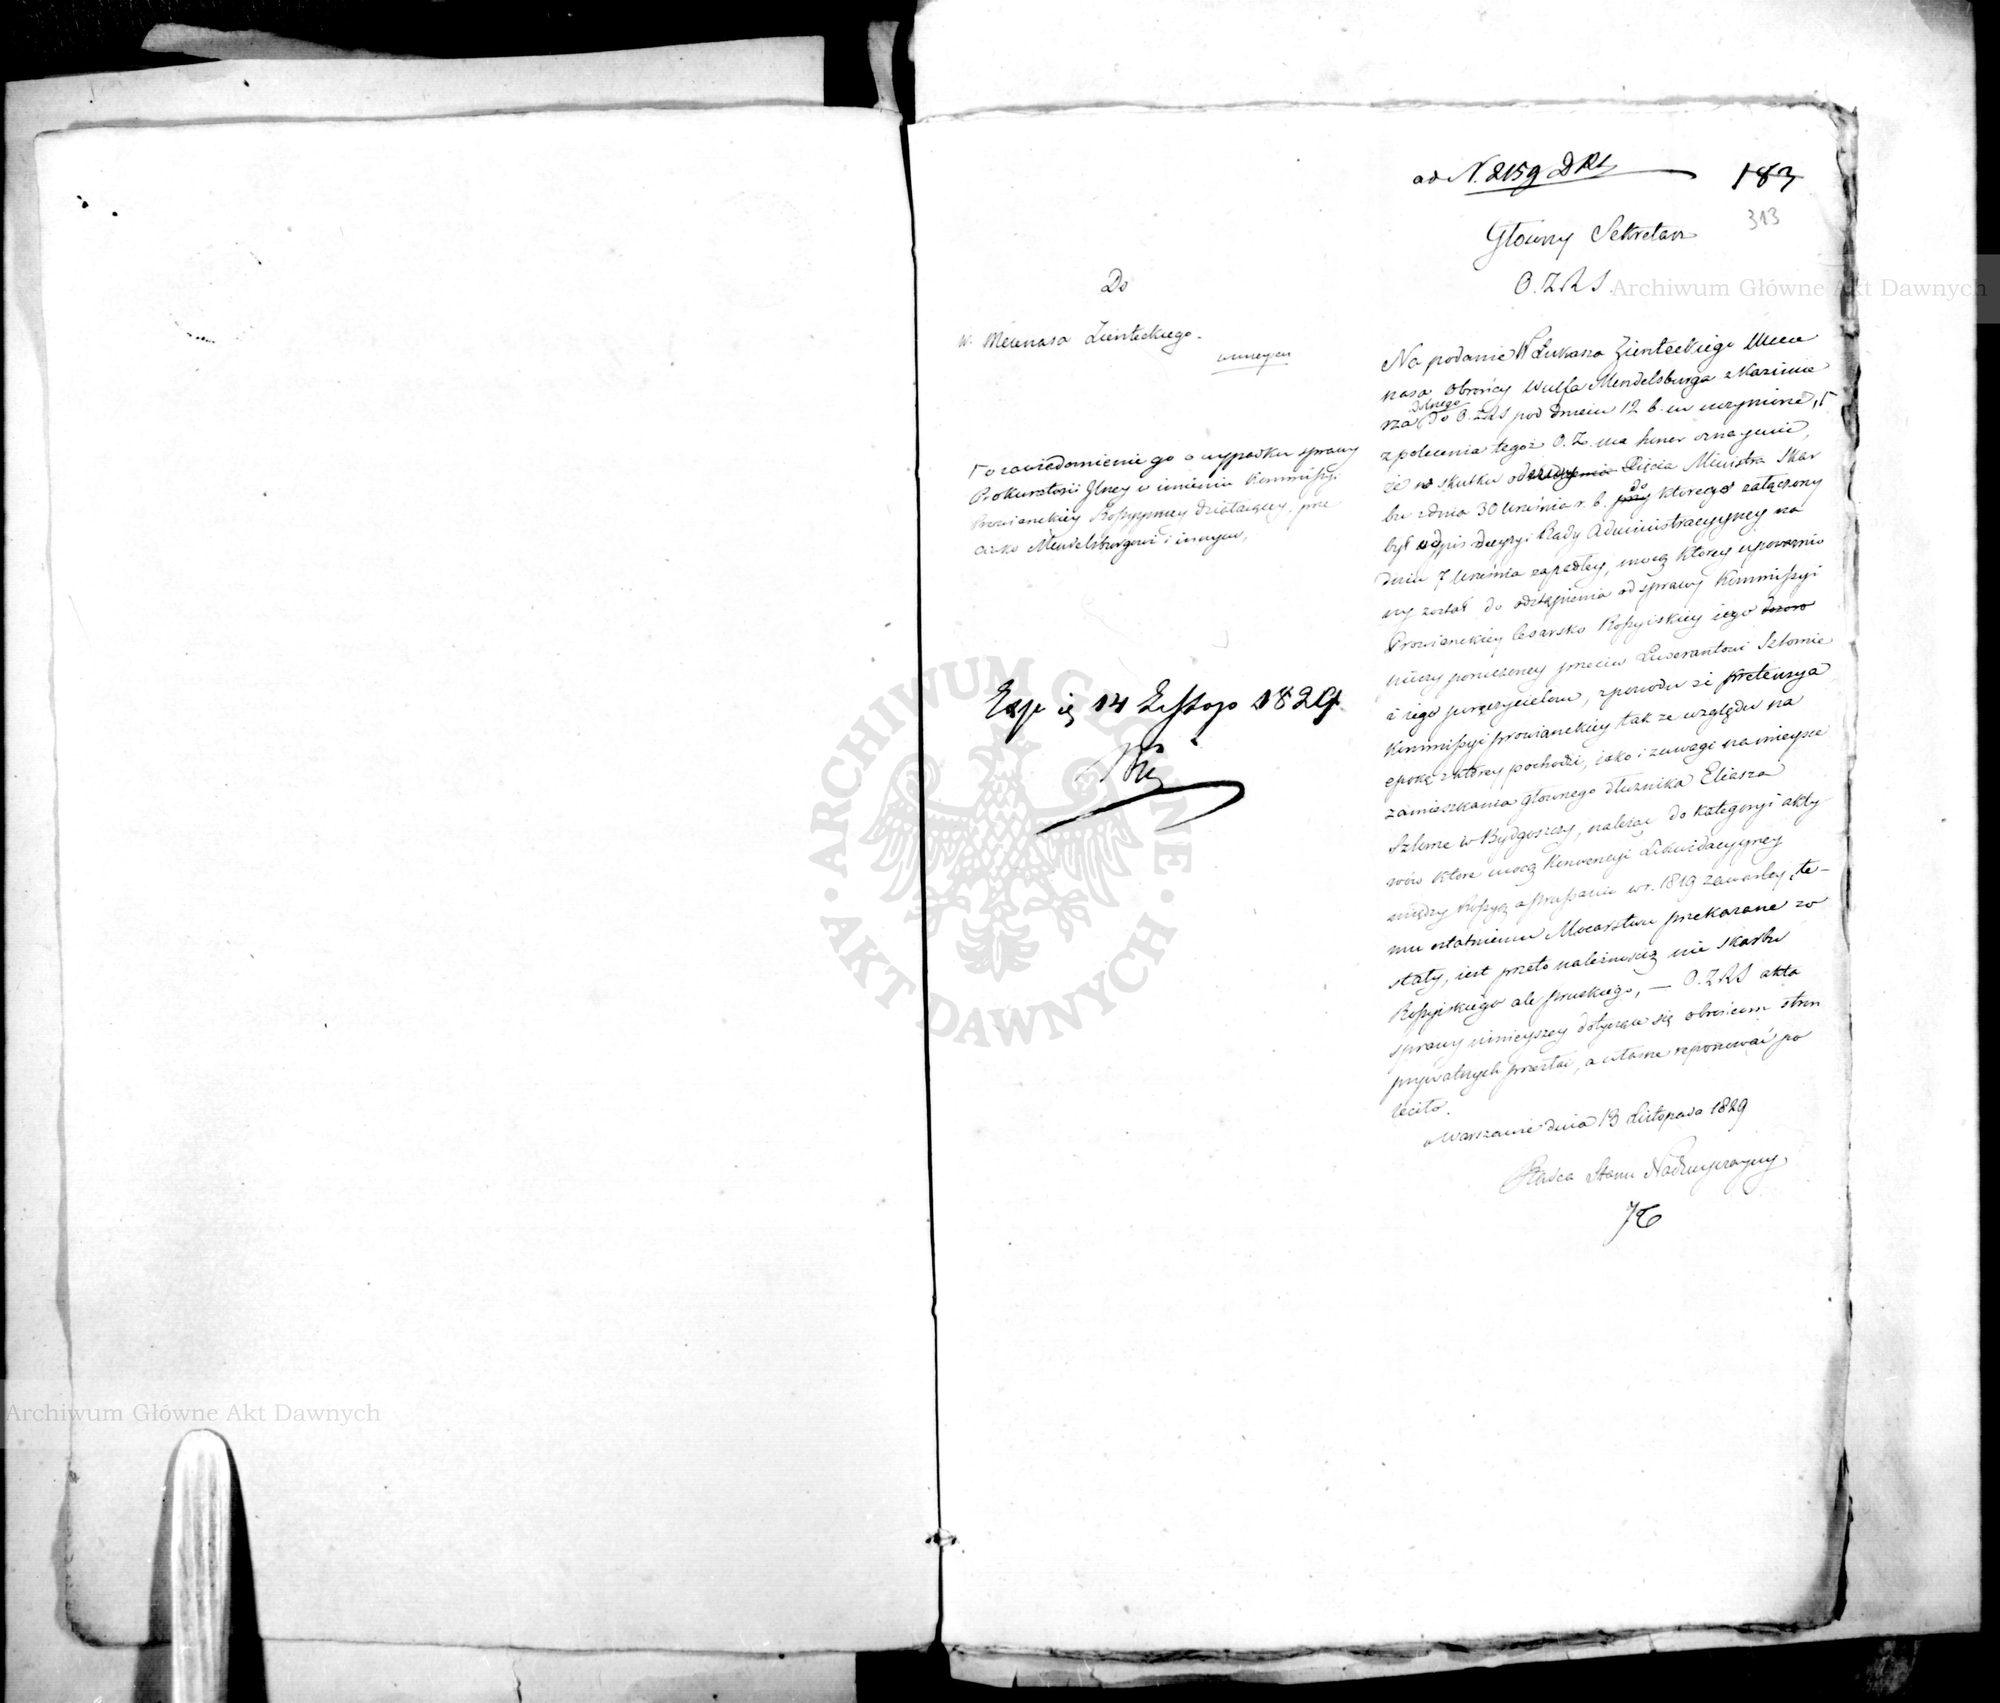 ad N. 2159 DRS
183
313
Głowny Sekretarz
O.Z.R.S.
Do
W. Mecenasa Zienteckiego.
w mieyscu
Γ o zawiadomienie go o wypadku sprawy
Prokuratorii Jlney w imieniu Kommissyi
Prowianckiey Rossyyskiey działaiącey, prze
ciwko Mendelsburgowi i innym,
Exp ię 14 Listop 1829.
Na podanie W Łukasza Zienteckiego Mece
nasa Obrońcy Wulfa Mendelsburga z Kazimie
rza Dolnego do O.ZRS pod dniem 12 b. m uczynione, Γ
z polecenia tegoż O.Z. ma honor oznaymić,
że w skutku odezwy Ministra Skar
bu z dnia 30 Września r. b. do ktorego załączony
był odpis decyzyi Rady Administracyyney na
dniu 7 Września zapadłey, mocą ktorey upoważnio
ny został do odstąpienia od sprawy Kommissyi
Prowianckiey Cesarsko Rossyiskiey iego dozoro
wi powierzoney przeciw Liwerantowi Szlomie
i iego poręczycielom, z powodu że pretensya
Kommissyi prowianckiey tak ze względu na
epokę z ktorey pochodzi, iako i z uwagi na mieysce
zamieszkania głownego dłużnika Eliasza
Szlome w Bydgoszczy, należąc do kategoryi akty
wów które mocą Konwencyi Likwidacyyney
między Rossyą a Prussami w r. 1819 zawartey, te-
mu ostatniemu Mocarstwu przekazane zo
stały, iest przeto należnością nie skarbu
Rossyiskiego ale pruskiego, — O.ZRS akta
sprawy ninieyszey dotyczące się obrońcom stron
prywatnych przesłać, a własne reponować po
leciło.
w Warszawie dnia 13 Listopada 1829
Radca Stanu Nadzwyczayny